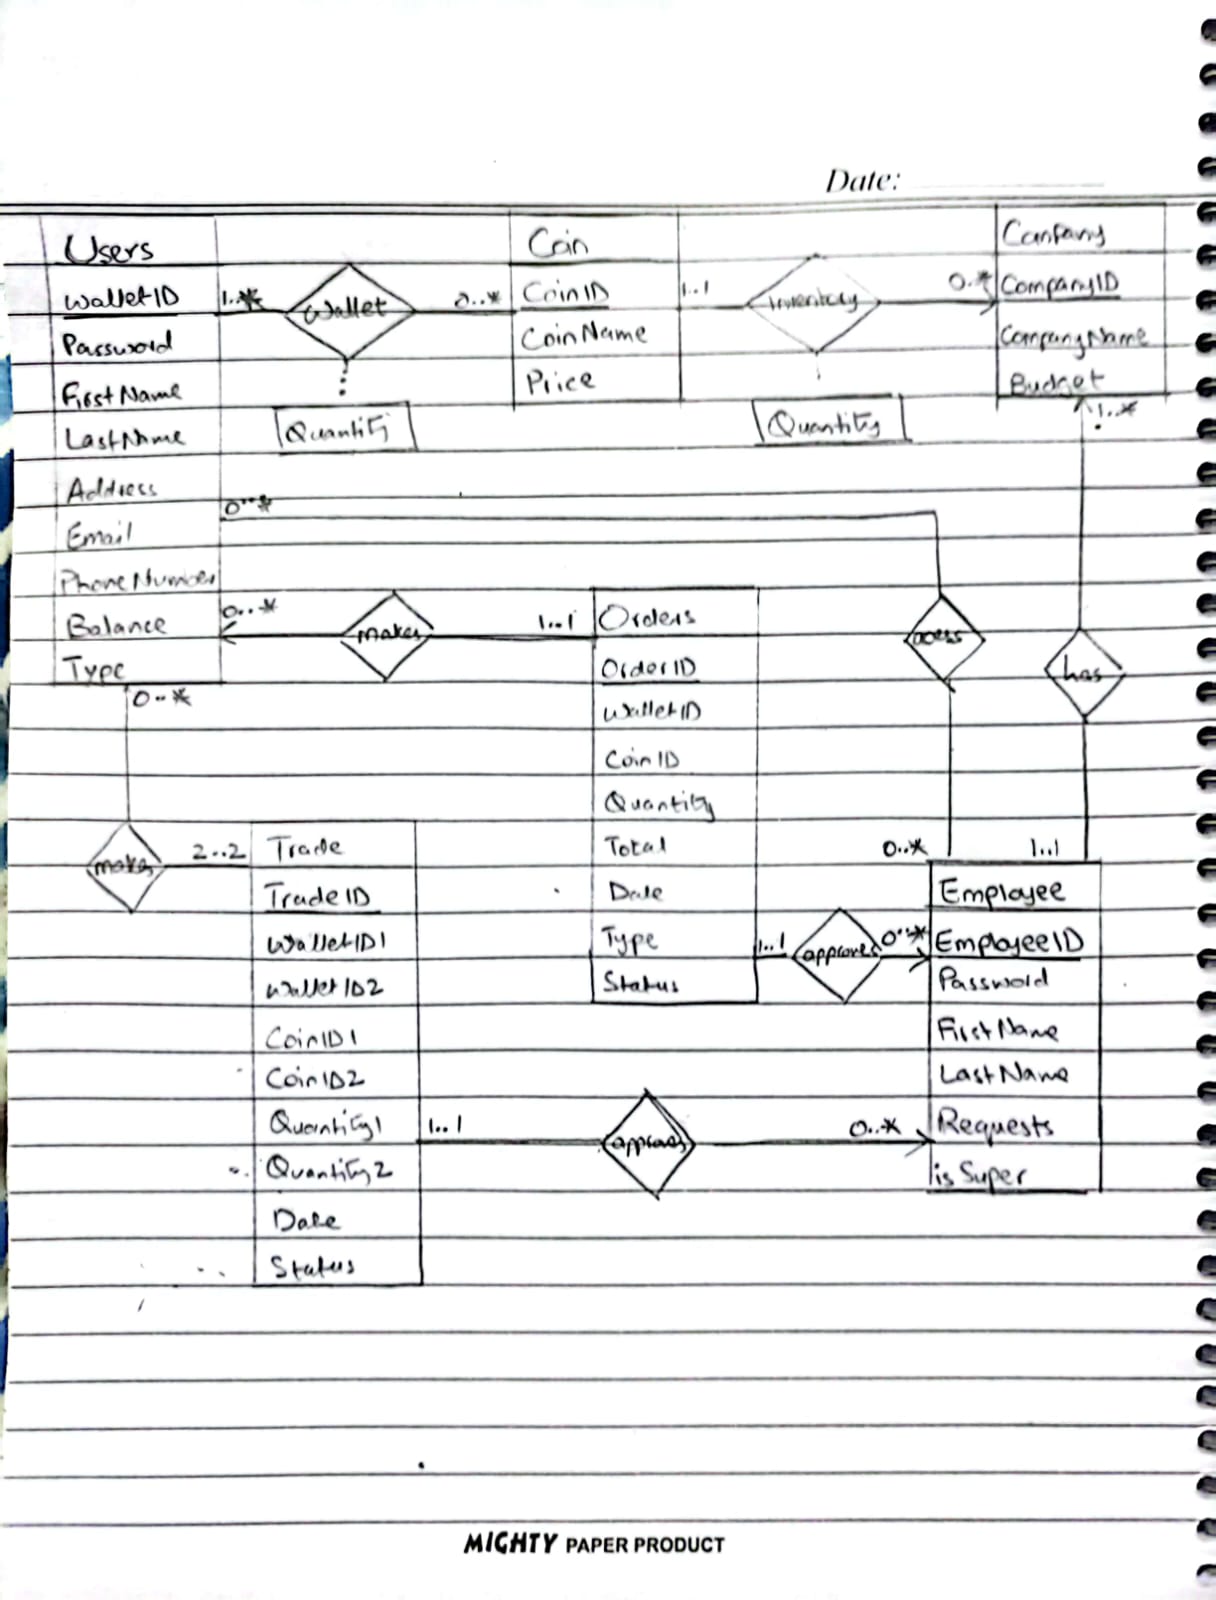 Date:
Users
WalletID
Password
FirstName
LastName
Address
Email
PhoneNumber
Balance
Type
1..*
Wallet
0..*
Quantity
Coin
CoinID
CoinName
Price
1..1
Inventory
0..*
Quantity
Company
CompanyID
CompanyName
Budget
1..*
0..*
0..*
makes
1..1
Orders
OrderID
WalletID
CoinID
Quantity
Total
Date
Type
Status
has
0..*
makes
2..2
Trade
TradeID
WalletID1
WalletID2
CoinID1
CoinID2
Quantity1
Quantity2
Date
Status
0..*
1..1
Employee
EmployeeID
Password
FirstName
LastName
Requests
isSuper
1..1
approves
0..*
1..1
0..*
MIGHTY PAPER PRODUCT